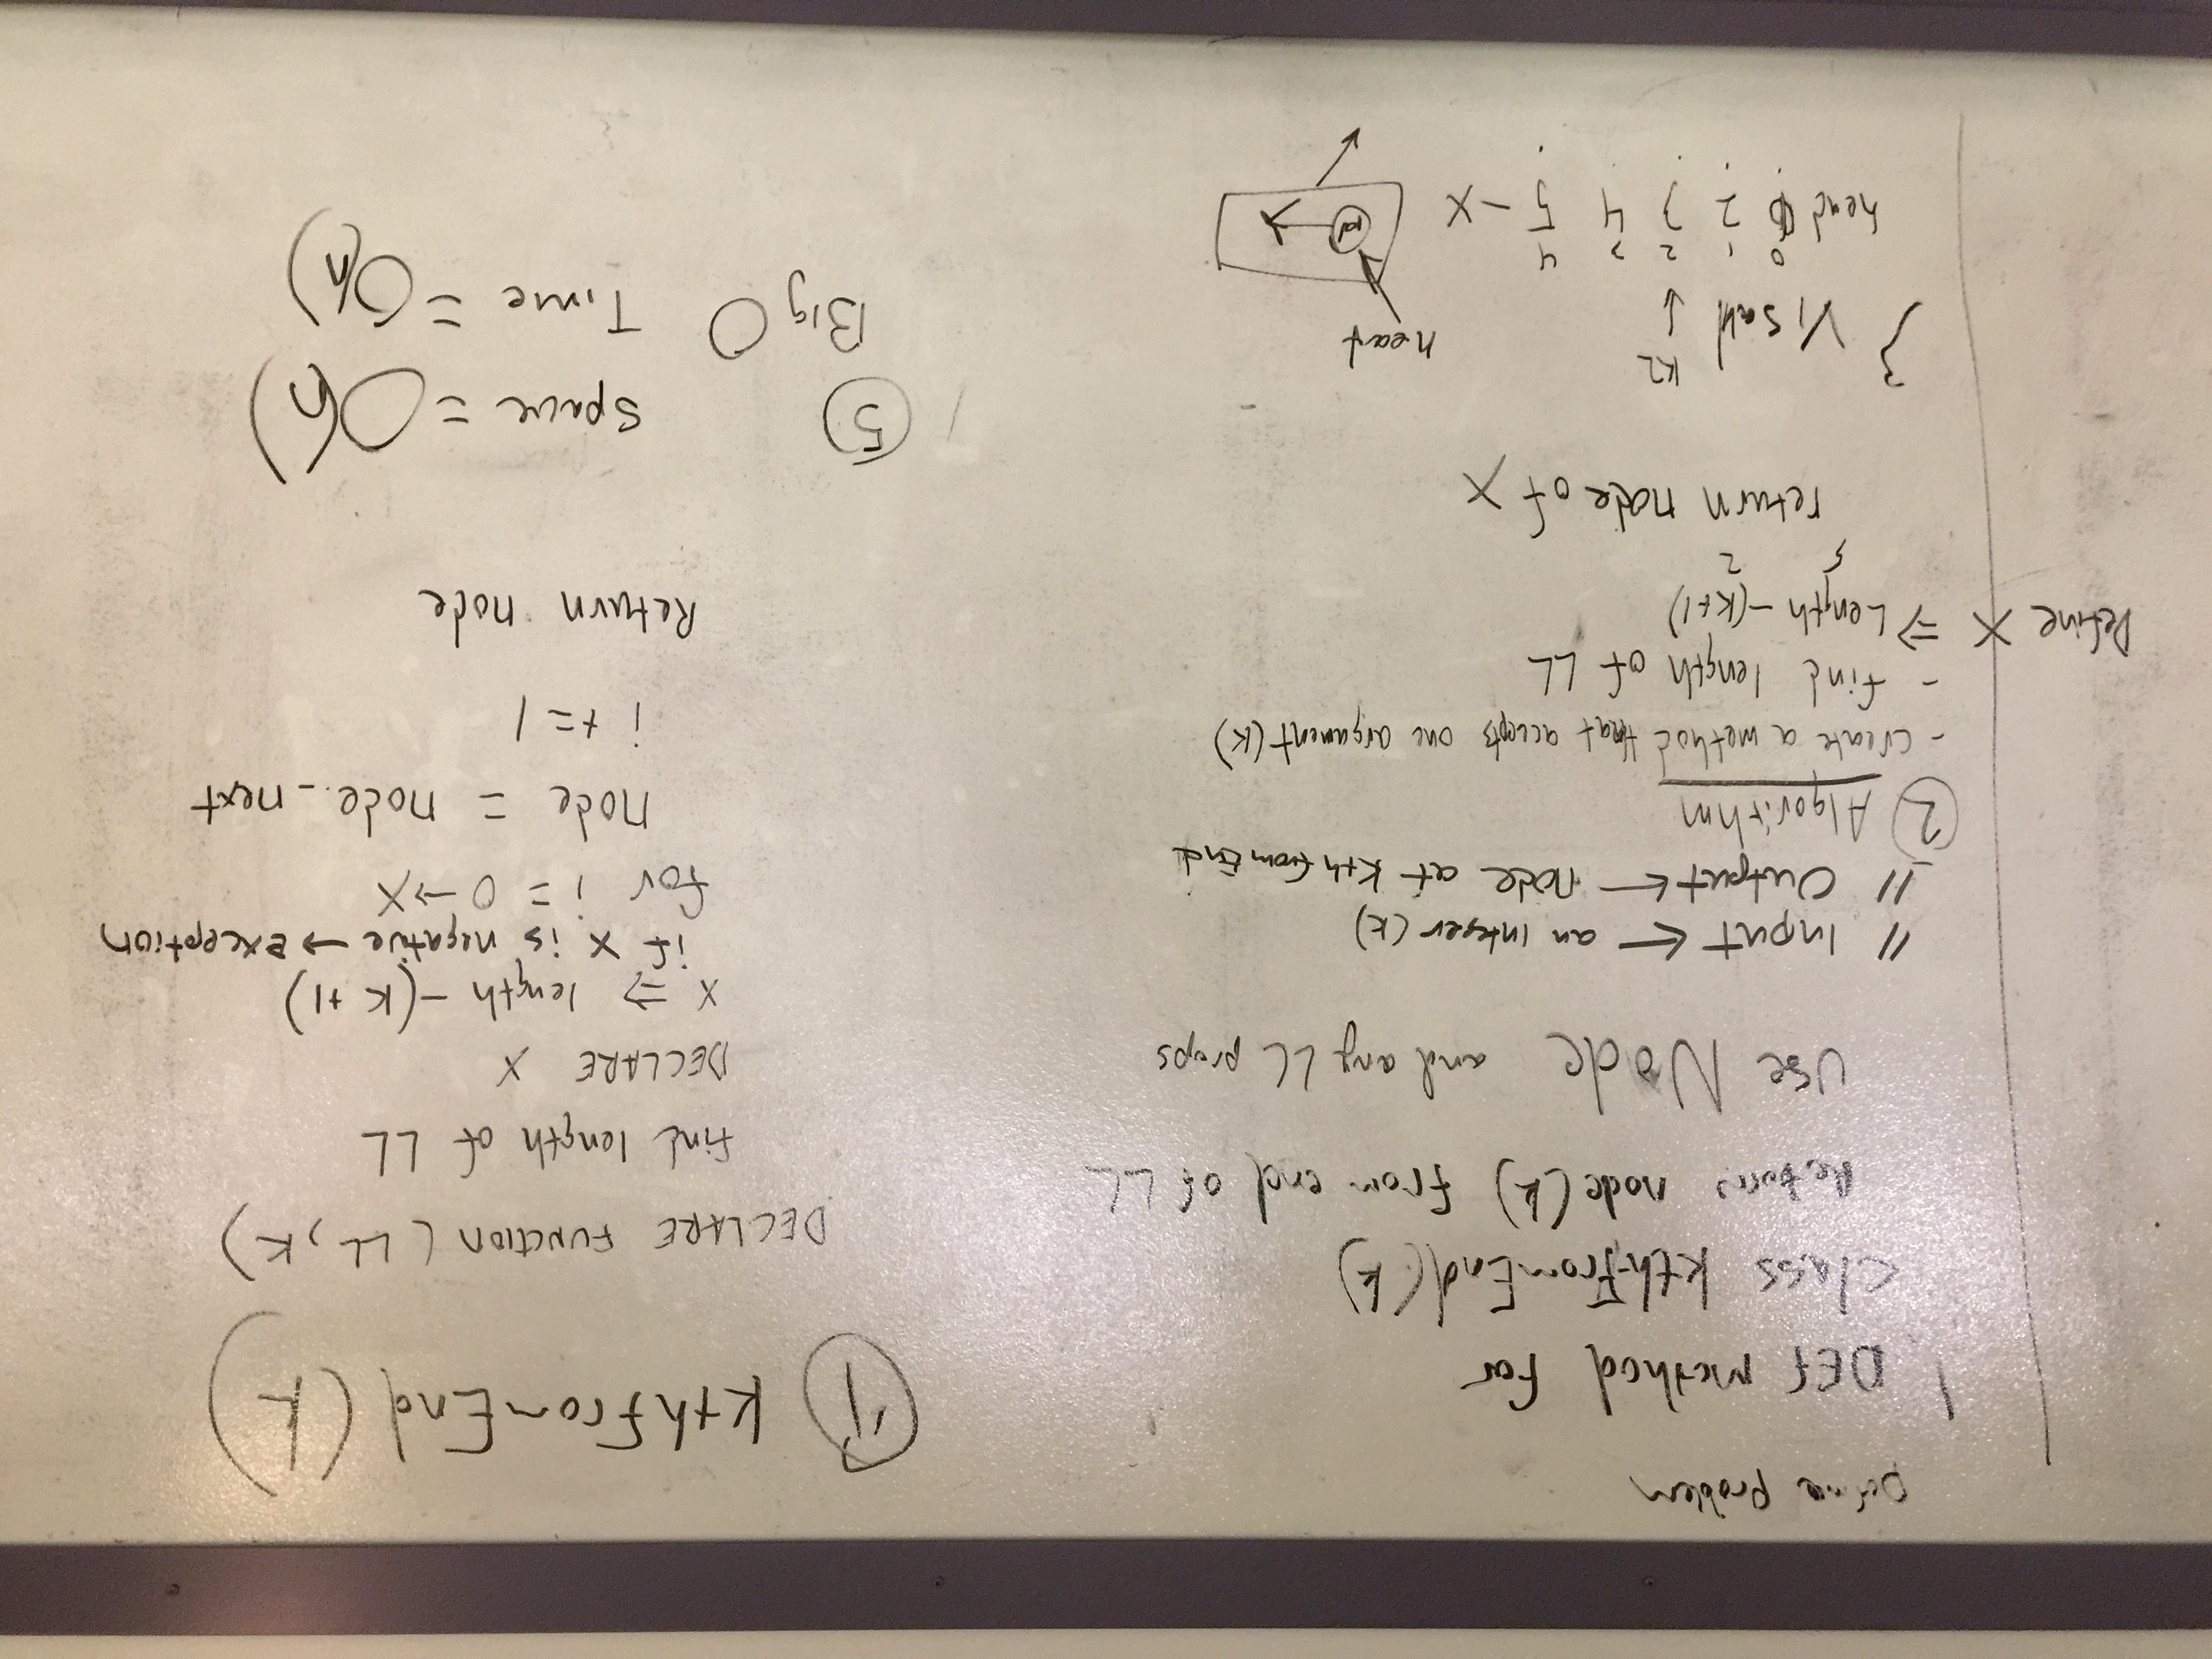 Define problem
1 DEf method for
class kthFromEnd(k)
Returns node(k) from end of LL
Use Node and any LL props
// Input ← an integer (k)
// Output ← node at kth from End
2 Algorithm
- create a method that accepts one argument (K)
- find length of LL
Define X ⇒ Length -(K+1)
5 2
return node of X
3 Visaul
K2
↓
0 1 2 3 4
head 2 3 4 5 - X
head
4 kthFromEnd(k)
DECLARE FUNCTION (LL, K)
find length of LL
DECLARE X
X ⇒ length -(K+1)
if X is negative → Exception
for i = 0 → X
node = node._next
i += 1
Return node
5 Big O
Space = O(n)
Time = O(n)